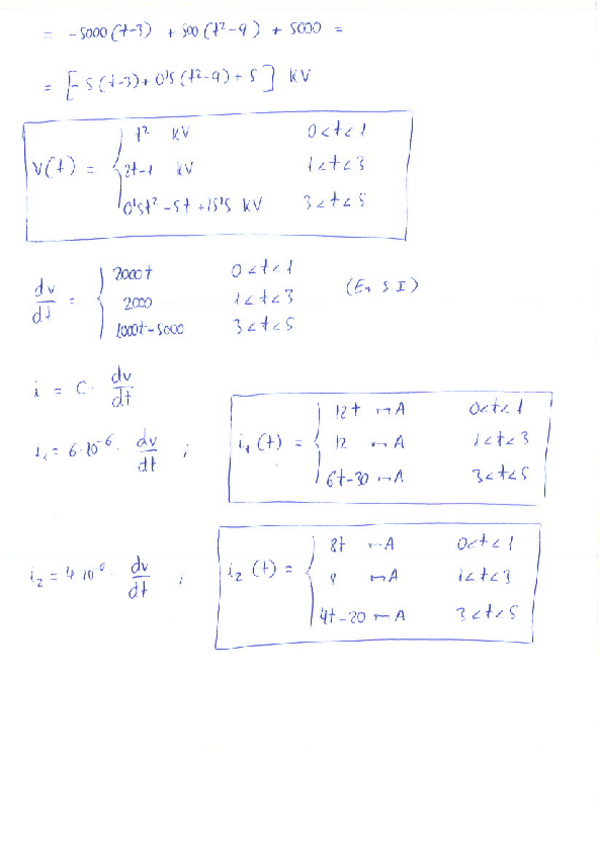 = -5000(t-3) + 500(t²-9) + 5000 =
= [-5(t-3)+0'5(t²-9)+5] KV
v(t) = { t² KV 0<t<1
2t-1 KV 1<t<3
0'5t²-5t+15'5 KV 3<t<5
dv/dt = { 2000t 0<t<1
2000 1<t<3 (En SI)
1000t-5000 3<t<5
i = C · dv/dt
i₁ = 6·10⁻⁶ · dv/dt ; i₁(t) = { 12t mA 0<t<1
12 mA 1<t<3
6t-30 mA 3<t<5
i₂ = 4·10⁻⁶ · dv/dt ; i₂(t) = { 8t mA 0<t<1
8 mA 1<t<3
4t-20 mA 3<t<5